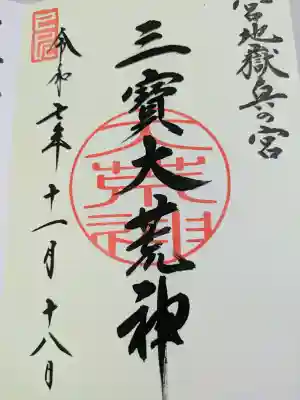 宮地嶽兵の宮
三寳大荒神
大荒神
令和七年十一月十八日